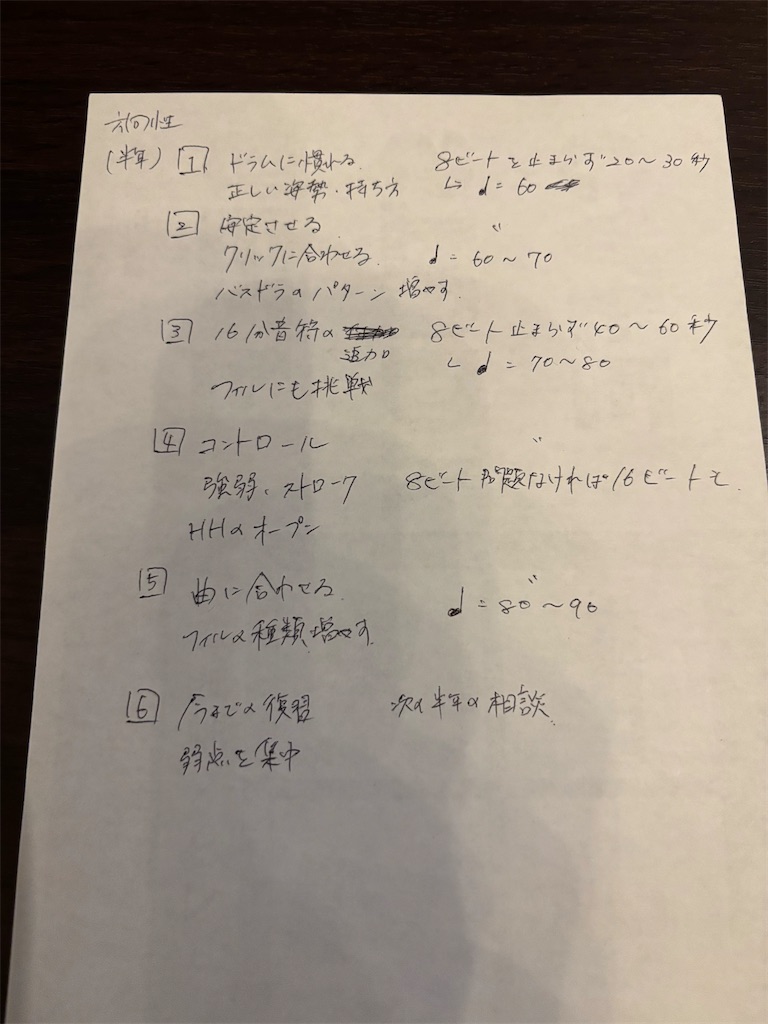 方向性
(半年) 1 ドラムに慣れる 8ビートを止まらず20〜30秒
正しい姿勢・持ち方 ↳ ♩=60
2 安定させる 〃
クリックに合わせる ♩=60〜70
バスドラのパターン増やす
3 16分音符の追加 8ビート止まらず40〜60秒
フィルにも挑戦 ↳ ♩=70〜80
4 コントロール 〃
強弱、ストローク 8ビート問題なければ16ビートを
HHのオープン
5 曲に合わせる 〃
フィルの種類増やす ♩=80〜90
6 今までの復習 次の半年の相談
弱点を集中